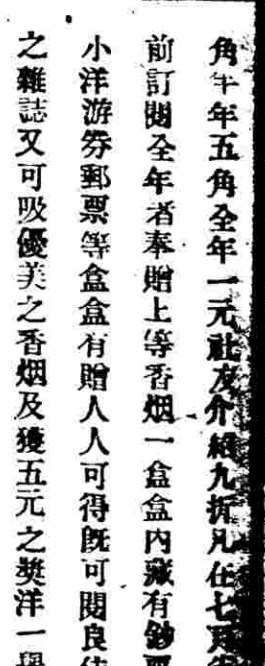 角半年五角全年一元社友介紹九折凡在七
前訂閱全年者奉贈上等香烟一盒盒內藏有鈔票
小洋游券郵票等盒盒有贈人人可得既可閱良
之雜誌又可吸優美之香烟及獲五元之獎洋一舉